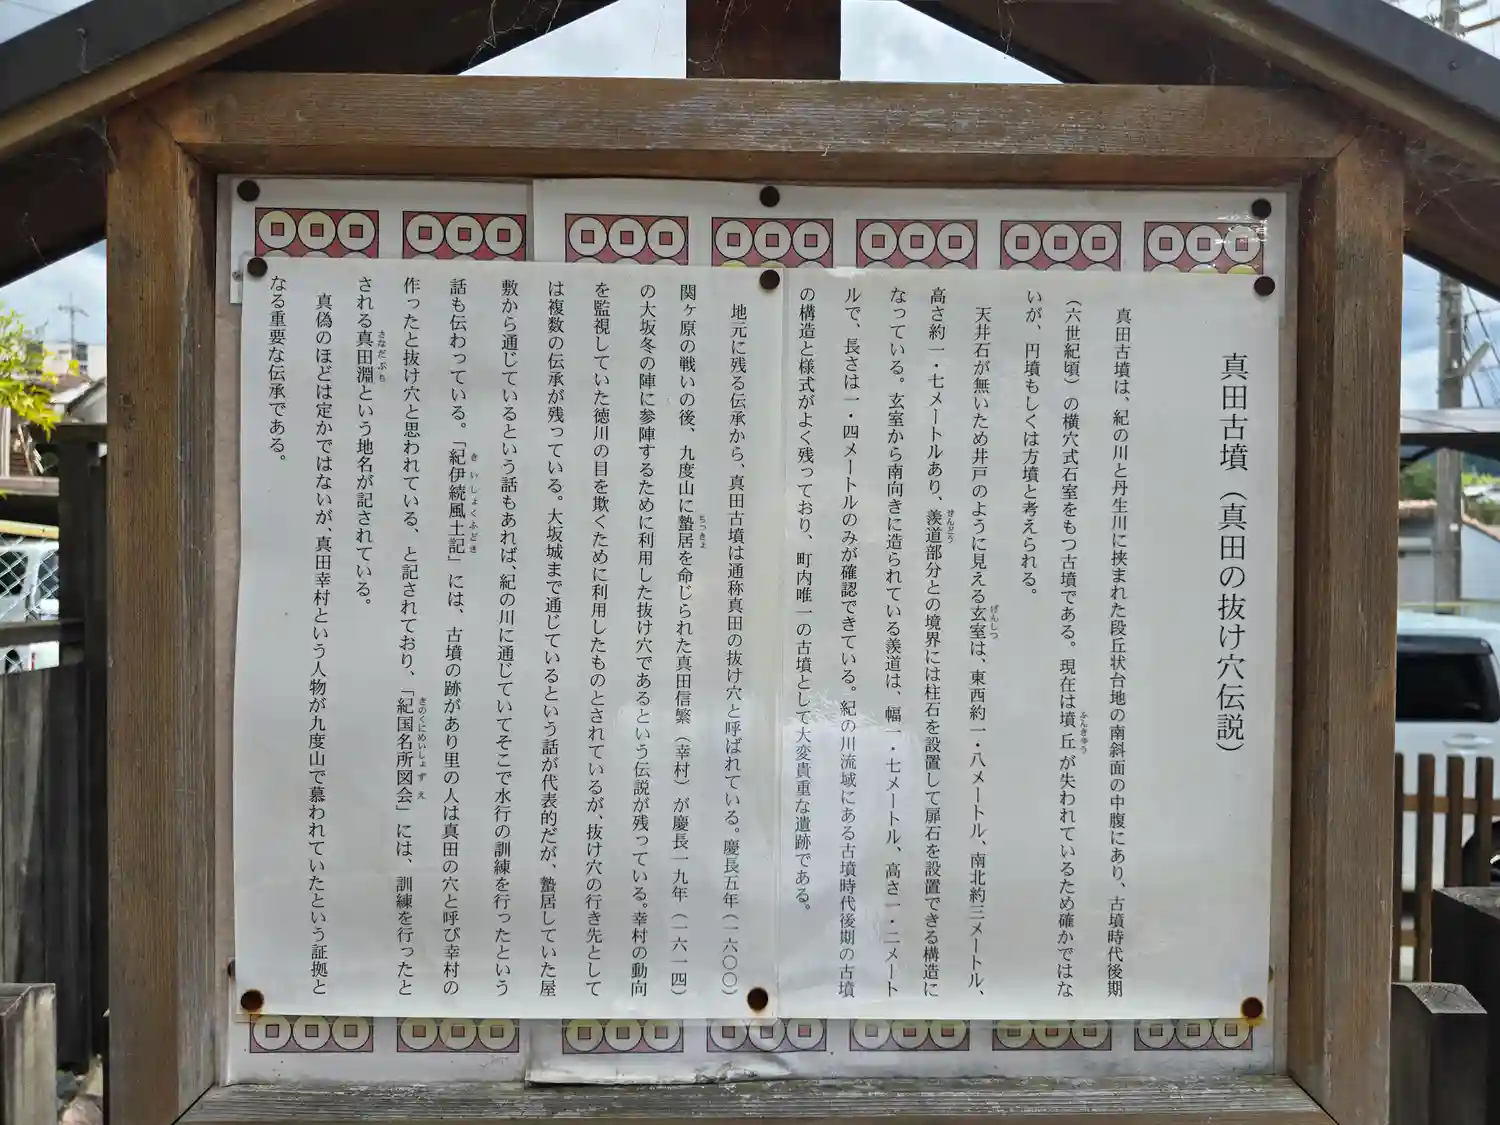 真田古墳（真田の抜け穴伝説）
真田古墳は、紀の川と丹生川に挟まれた段丘状台地の南斜面の中腹にあり、古墳時代後期
（六世紀頃）の横穴式石室をもつ古墳である。現在は墳丘が失われているため確かではな
ふんきゅう
いが、円墳もしくは方墳と考えられる。
天井石が無いため井戸のように見える玄室は、東西約一・八メートル、南北約三メートル、
げんしつ
高さ約一・七メートルあり、羨道部分との境界には柱石を設置して扉石を設置できる構造に
せんどう
なっている。玄室から南向きに造られている羨道は、幅一・七メートル、高さ一・二メート
ルで、長さは一・四メートルのみが確認できている。紀の川流域にある古墳時代後期の古墳
の構造と様式がよく残っており、町内唯一の古墳として大変貴重な遺跡である。
地元に残る伝承から、真田古墳は通称真田の抜け穴と呼ばれている。慶長五年（一六〇〇）
関ヶ原の戦いの後、九度山に蟄居を命じられた真田信繁（幸村）が慶長一九年（一六一四）
ちっきょ
の大坂冬の陣に参陣するために利用した抜け穴であるという伝説が残っている。幸村の動向
を監視していた徳川の目を欺くために利用したものとされているが、抜け穴の行き先として
は複数の伝承が残っている。大坂城まで通じているという話が代表的だが、蟄居していた屋
敷から通じているという話もあれば、紀の川に通じていてそこで水行の訓練を行ったという
話も伝わっている。「紀伊続風土記」には、古墳の跡があり里の人は真田の穴と呼び幸村の
きいしょくふどき
作ったと抜け穴と思われている、と記されており、「紀国名所図会」には、訓練を行ったと
きのくにめいしょずえ
される真田淵という地名が記されている。
さなだぶち
真偽のほどは定かではないが、真田幸村という人物が九度山で慕われていたという証拠と
なる重要な伝承である。